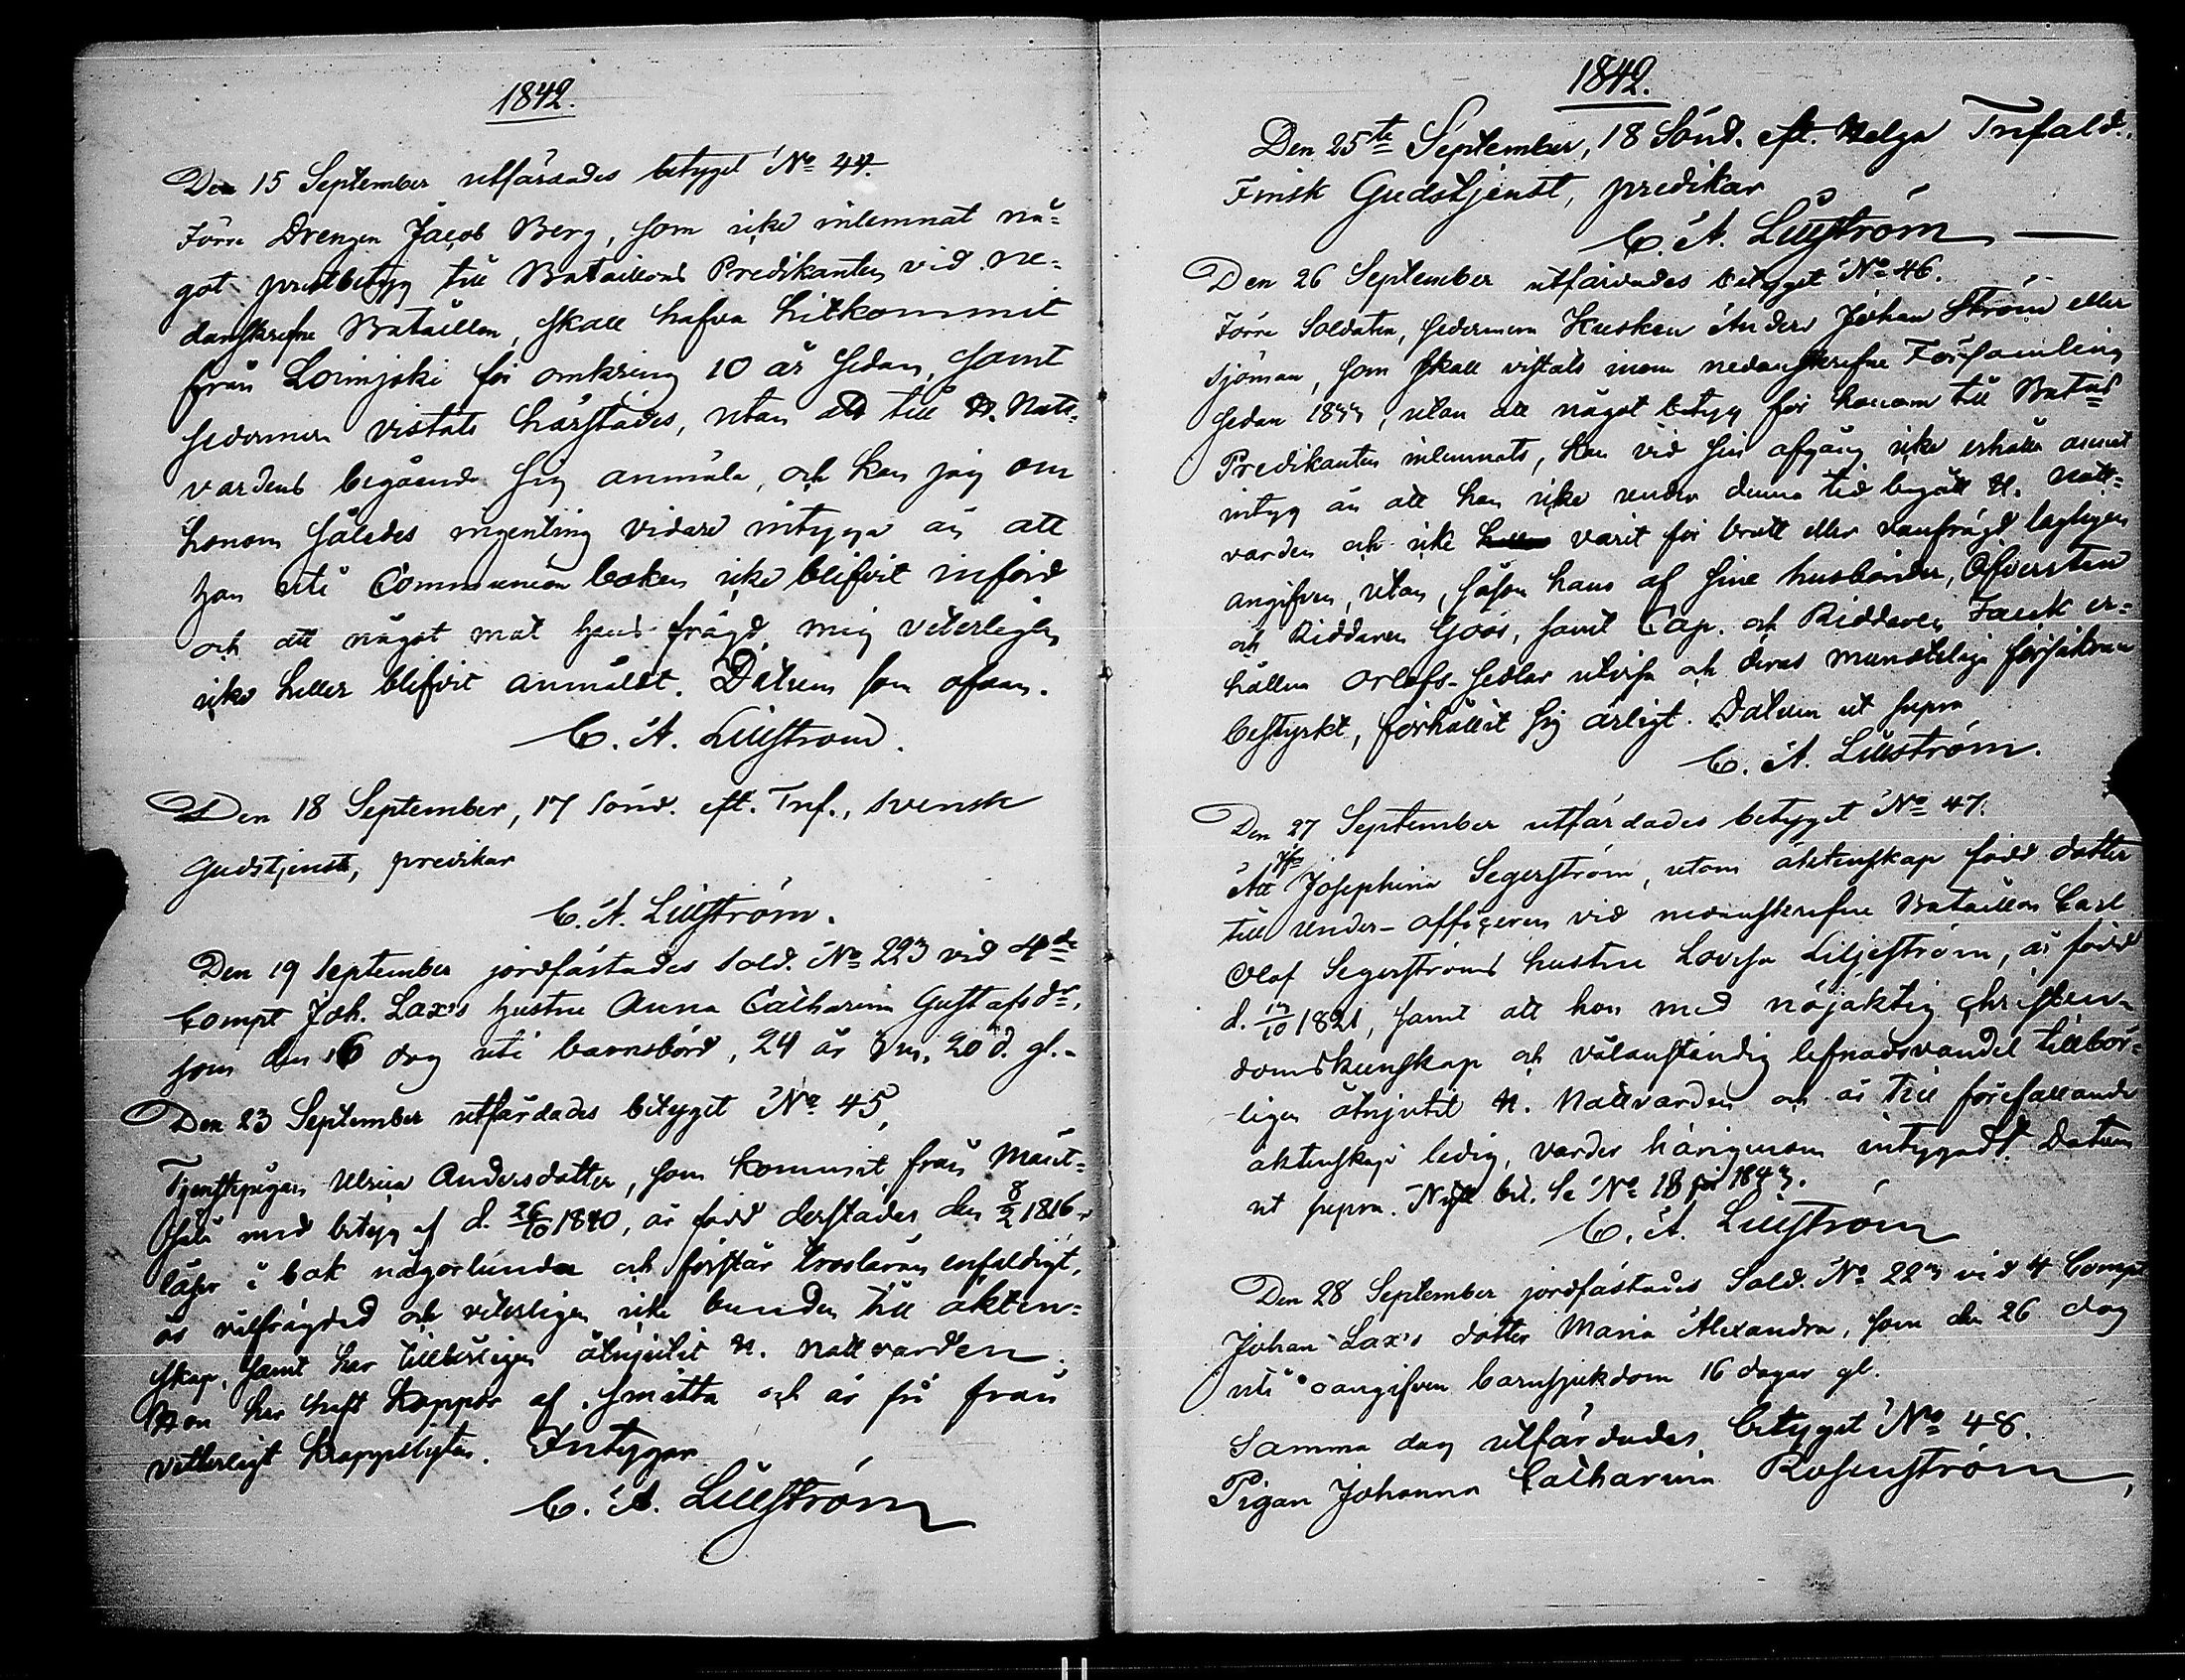 1842.
Den 15 September utfärdades betyget No 44.
Förre Drengen Jacob Berg, som icke inlemnat nå-
got prestbetyg till Bataillons Predikanten vid ne-
danskrefne Bataillon, skall hafva hitkommit
från Loimjoki för omkring 10 år sedan, samt
sedermera vistats härstädes, utan att till H. Natt-
vardens begående sig anmäla, och kan jag om
honom således ingenting vidare intyga än att
han uti Communion boken icke blifvit införd
och att något mot hans frägd mig veterligen
icke heller blifvit anmäldt. Datum som ofvan.
C. A. Lillström.
Den 18 September, 17 Sönd. eft. Tref., svensk
Gudstjenst, predikar
C. A. Lillström.
Den 19 September jordfästades Sold. No 223 vid 4de
Compt Joh. Lax's hustru Anna Catharina Gustafsdr,
som den 16 dog uti barnsbörd, 24 år 3 m. 20 d. gl.
Den 23 September utfärdades betyget No 45,
Tjenstepigan Ulrica Andersdotter, som kommit från Mänt-
sälä med betyg af d. 26/10 1840, är född derstädes den 8/2 1816,
läser i bok någorlunda och förstår trosläran enfaldigt,
är välfrägdad och veterligen icke bunden till äkten-
skap, samt har tillbörligen åtnjutit H. nattvarden.
Hon har haft koppor af smitta och är fri från
vetterligt kroppslyte. Intygar
C. A. Lillström
1842.
Den 25te September, 18 Sönd. eft. Helga Trefald.
Finsk Gudstjenst, predikar
C. A. Lillström
Den 26 September utfärdades betyget No 46.
Förre Soldaten, sedermera Kusken Anders Johan Ström eller
Sjöman, som skall vistats inom nedanskrefne Församling
sedan 1833, utan att något betyg för honom till Batns
Predikanten inlemnats, kan vid sin afgång icke erhålla annat
intyg än att han icke under denna tid begått H. Natt-
varden och icke varit för brott eller vanfrägd lagligen
angifven, utan, såsom hans af sine husbönder, Öfversten
och Riddaren Göös, samt Cap. och Riddaren Fauck er-
hållna orlofs-sedlar utvisa och deras muntliga försäkran
bestyrkt, förhållit sig ärligt. Datum ut supra
C. A. Lillström.
Den 27 September utfärdades betyget No 47.
Att Jfr Josephina Segerström, utom äktenskap född dotter
till Under-officeren vid nedanskrefne Bataillon Carl
Olof Segerströms hustru Lovisa Liljeström, är född
d. 13/10 1821, samt att hon med nöjaktig christen-
domskunskap och välanständig lefnadsvandel tillbör-
ligen åtnjutit H. Nattvarden och är till förefallande
äktenskap ledig, varder härigenom intygadt. Datum
ut supra. Nytt bet. Se No 18 för 1843.
C. A. Lillström
Den 28 September jordfästades Sold. No 223 vid 4 Compt
Johan Lax's dotter Maria Alexandra, som den 26 dog
uti oangifven barnsjukdom 16 dagar gl.
Samma dag utfärdades betyget No 48.
Pigan Johanna Catharina Rosenström,